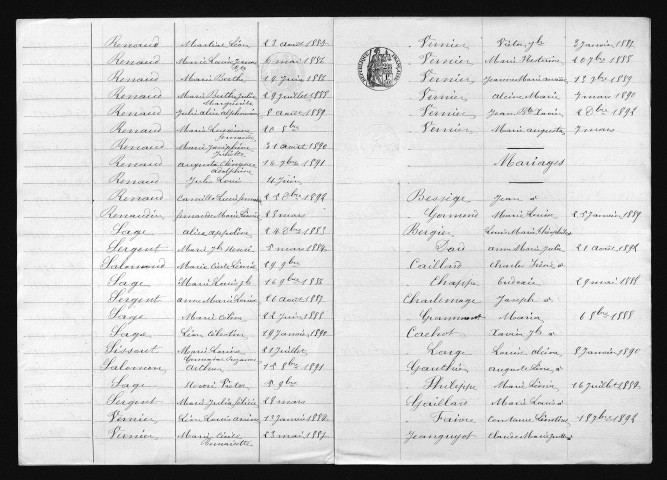 Renaud Martine Léon 23 août 1884
Renaud Marie Louis 6 mai 1886
Renaud Marie Berthe 10 juin 1888
Renaud Marie Berthe Julie 29 juillet 1888
Marguerite
Renaud Julie alice alphonsine 8 août 1889
Renaud Marie Lucienne 20 8bre
Renaud Marie Joséphine 31 août 1890
Juliette
Renaud augusta Clémence 16 7bre 1891
Joséphine
Renaud Jules Louis 4 juin
Renaud Camille Lucie 25 Xbre 1892
Renaudin Marie Louise 23 mars
Sage alice appoline 24 Xbre 1883
Sergent Marie Jh Henri 5 mars 1884
Salomond Marie Cécile Louise 29 9bre
Sage Marie Louis Jh 16 9bre 1885
Sergent anne Marie Louise 26 août 1887
Sage Marie Céline 22 juin 1888
Sage Léon Célestin 19 Janvier 1890
Sissout Marie Louise 21 juillet
Germaine Suzanne
Salomon Arthur 15 8bre 1891
Sage Henri Victor 5 9bre
Sergent Marie Julia 28 mars
Vernier Léon Louis 1r janvier 1884
Vernier Marie Cécile 23 mai 1884
Bernadette
Vernier Victor Jh 3 Janvier 1887
Vernier Marie 20 7bre 1888
Vernier Jeanne Marie 13 7bre 1889
Vernier alcine Marie 7 mars 1890
Vernier Jean Bte Xavier 2 Xbre 1892
Vernier Marie augusta 7 mars
Mariages
Bessège Jean &
Gormond Marie Louise 25 janvier 1889
Bergier Louis Marie &
anne Marie Julie 21 août 1892
Caillard Charles &
Chappe 29 mai 1888
Charlemage Joseph &
Grammont Maria 6 8bre 1888
Cachot Xavier Jh &
Large Louise 8 janvier 1890
Gauthier auguste &
Philippe Marie Louise 16 juillet 1884
Gaillard Marie Louis &
Faivre Constance 18 7bre 1892
Jeanguyot